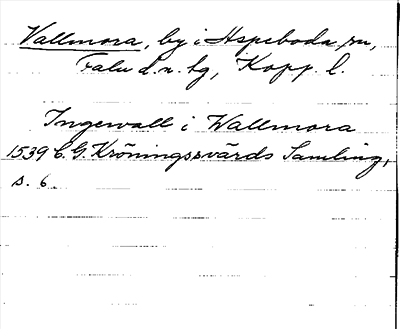 Vallmora, by i Aspeboda sn,
Falu d.n. tg, Kopp. l.
Ingevall i Wallmora
1539 C. G. Kröningssvärds Samling,
s. 6.